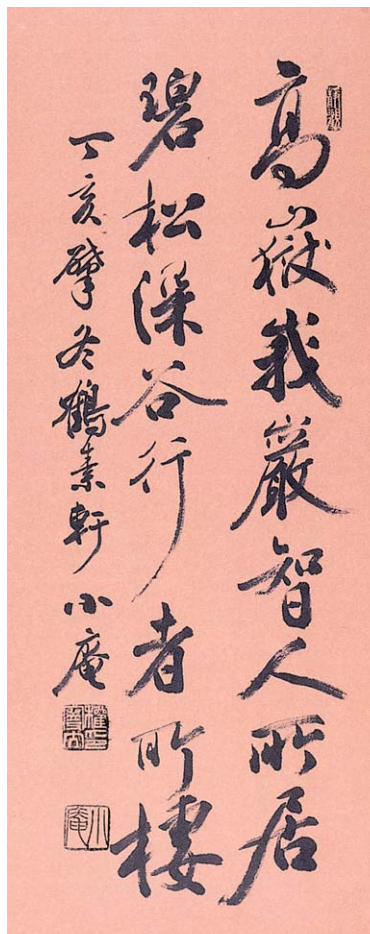 高嶽峩巖智人所居
碧松深谷行者所棲
丁亥肇冬鶴素軒 小庵
小庵